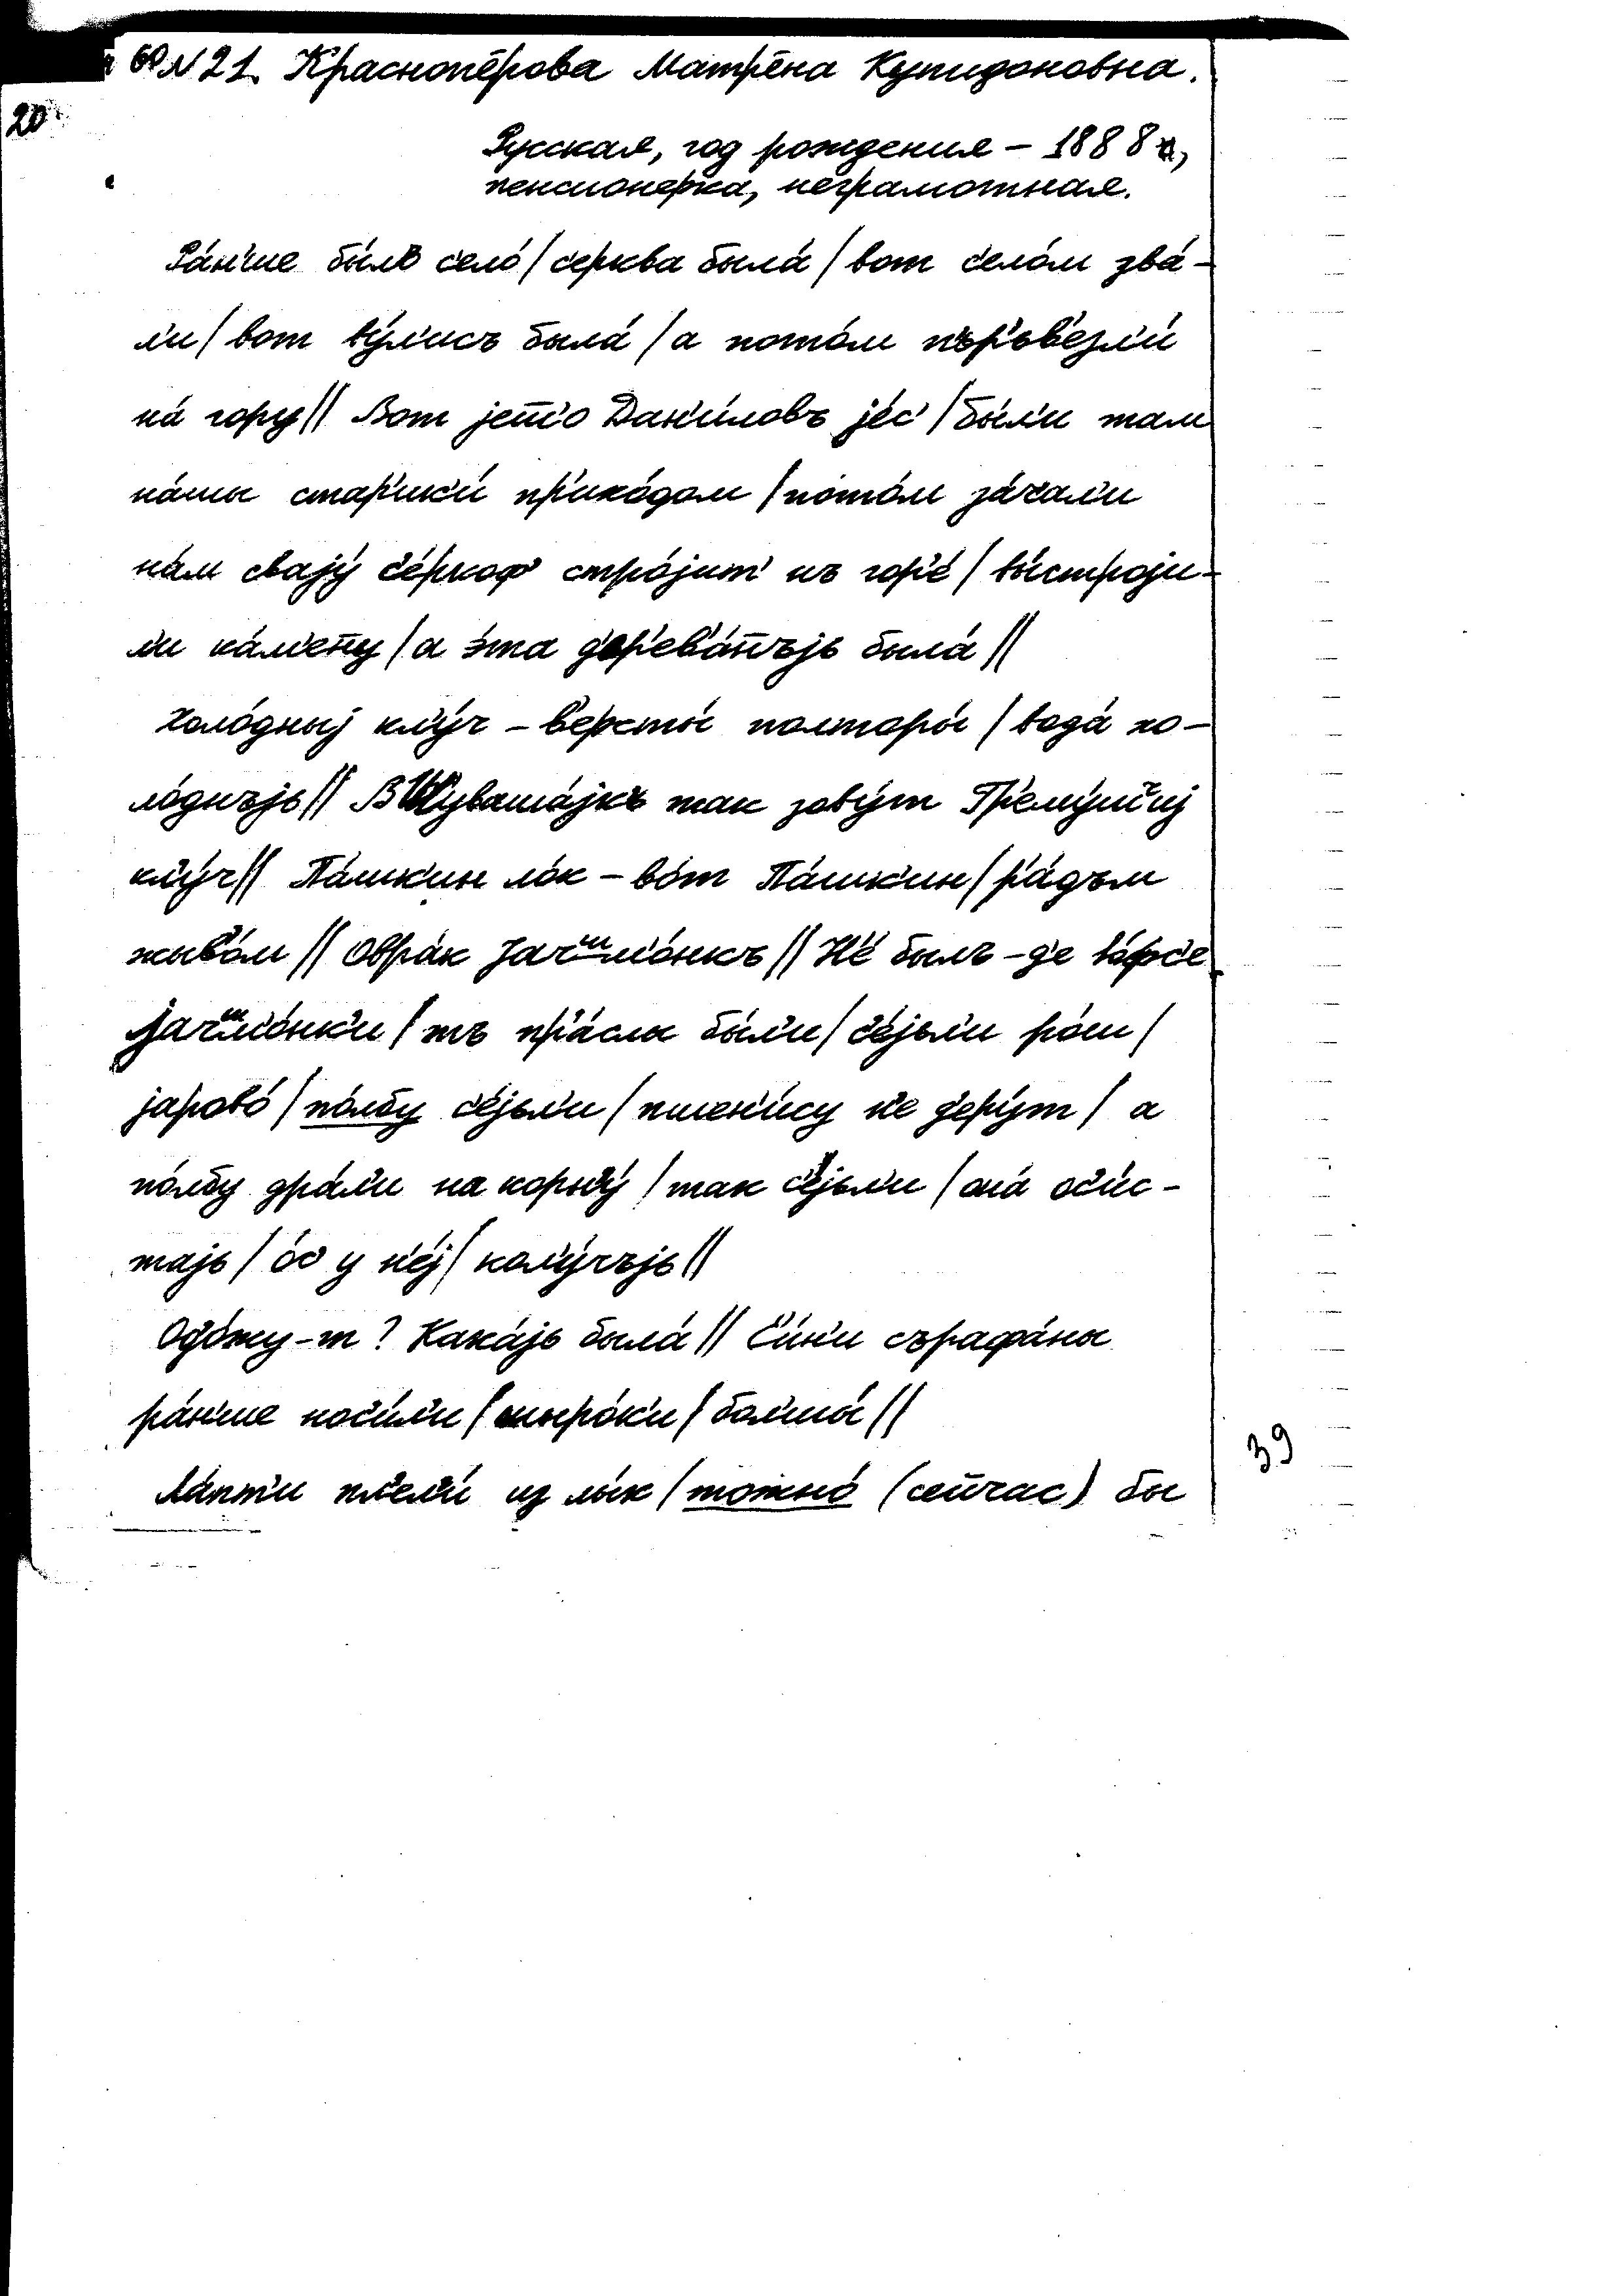 № 21. Краснопёрова Матрёна Купидоновна.
20
Русская, год рождения – 1888 г.,
пенсионерка, неграмотная.
Ра́н'ше бы́лъ с'ело́ / с'ерква была́ / вот с'ело́м зва́-
ли / вот ву́л'исъ была́ / а пото́м пър'ьв'езл'и́
на́ гору // Вот јето Дан'и́ловъ је́с' / бы́л'и там
на́шы стар'ик'и́ пр'ихо́дом / пото́м за́чал'и
на́м свају́ с'е́ркоф' стро́јит' нъ гор'е́ / вы́строји-
ли ка́м'ену / а э́та д'ер'ев'а́нъјь была́ //
Холо́дныј кл'у́ч – в'ерсты́ полторы́ / вода́ хо-
ло́днъјь // В Шувашајкъ так зову́т Гр'ему́ч'иј
кл'у́ч // Па́шк'ин ло́к – во́т Па́шк'ин / р'а́дъм
жыв'о́м // Овра́к Јачшм'о́нкъ // Н'е́ былъ-де во́фс'е
јачшм'о́нк'и / тъ пр'а́слы бы́л'и / с'е́јьл'и ро́ш /
јарово́ / по́лбу с'е́јьл'и / пшен'и́су н'е д'еру́т / а
по́лбу дра́л'и на корн'у́ / так с'е́јьл'и / она́ ос'и́с-
тајь / о́с у н'е́ј / кол'у́чъјь //
Од'о́жу-т? Кака́јь была́ // С'и́н'и сърафа́ны
ра́н'ше нос'и́л'и / шыро́к'и / бол'шы́ //
Ла́пт'и пл'ел'и́ из лы́к / тожно́ (сейчас) бы
39